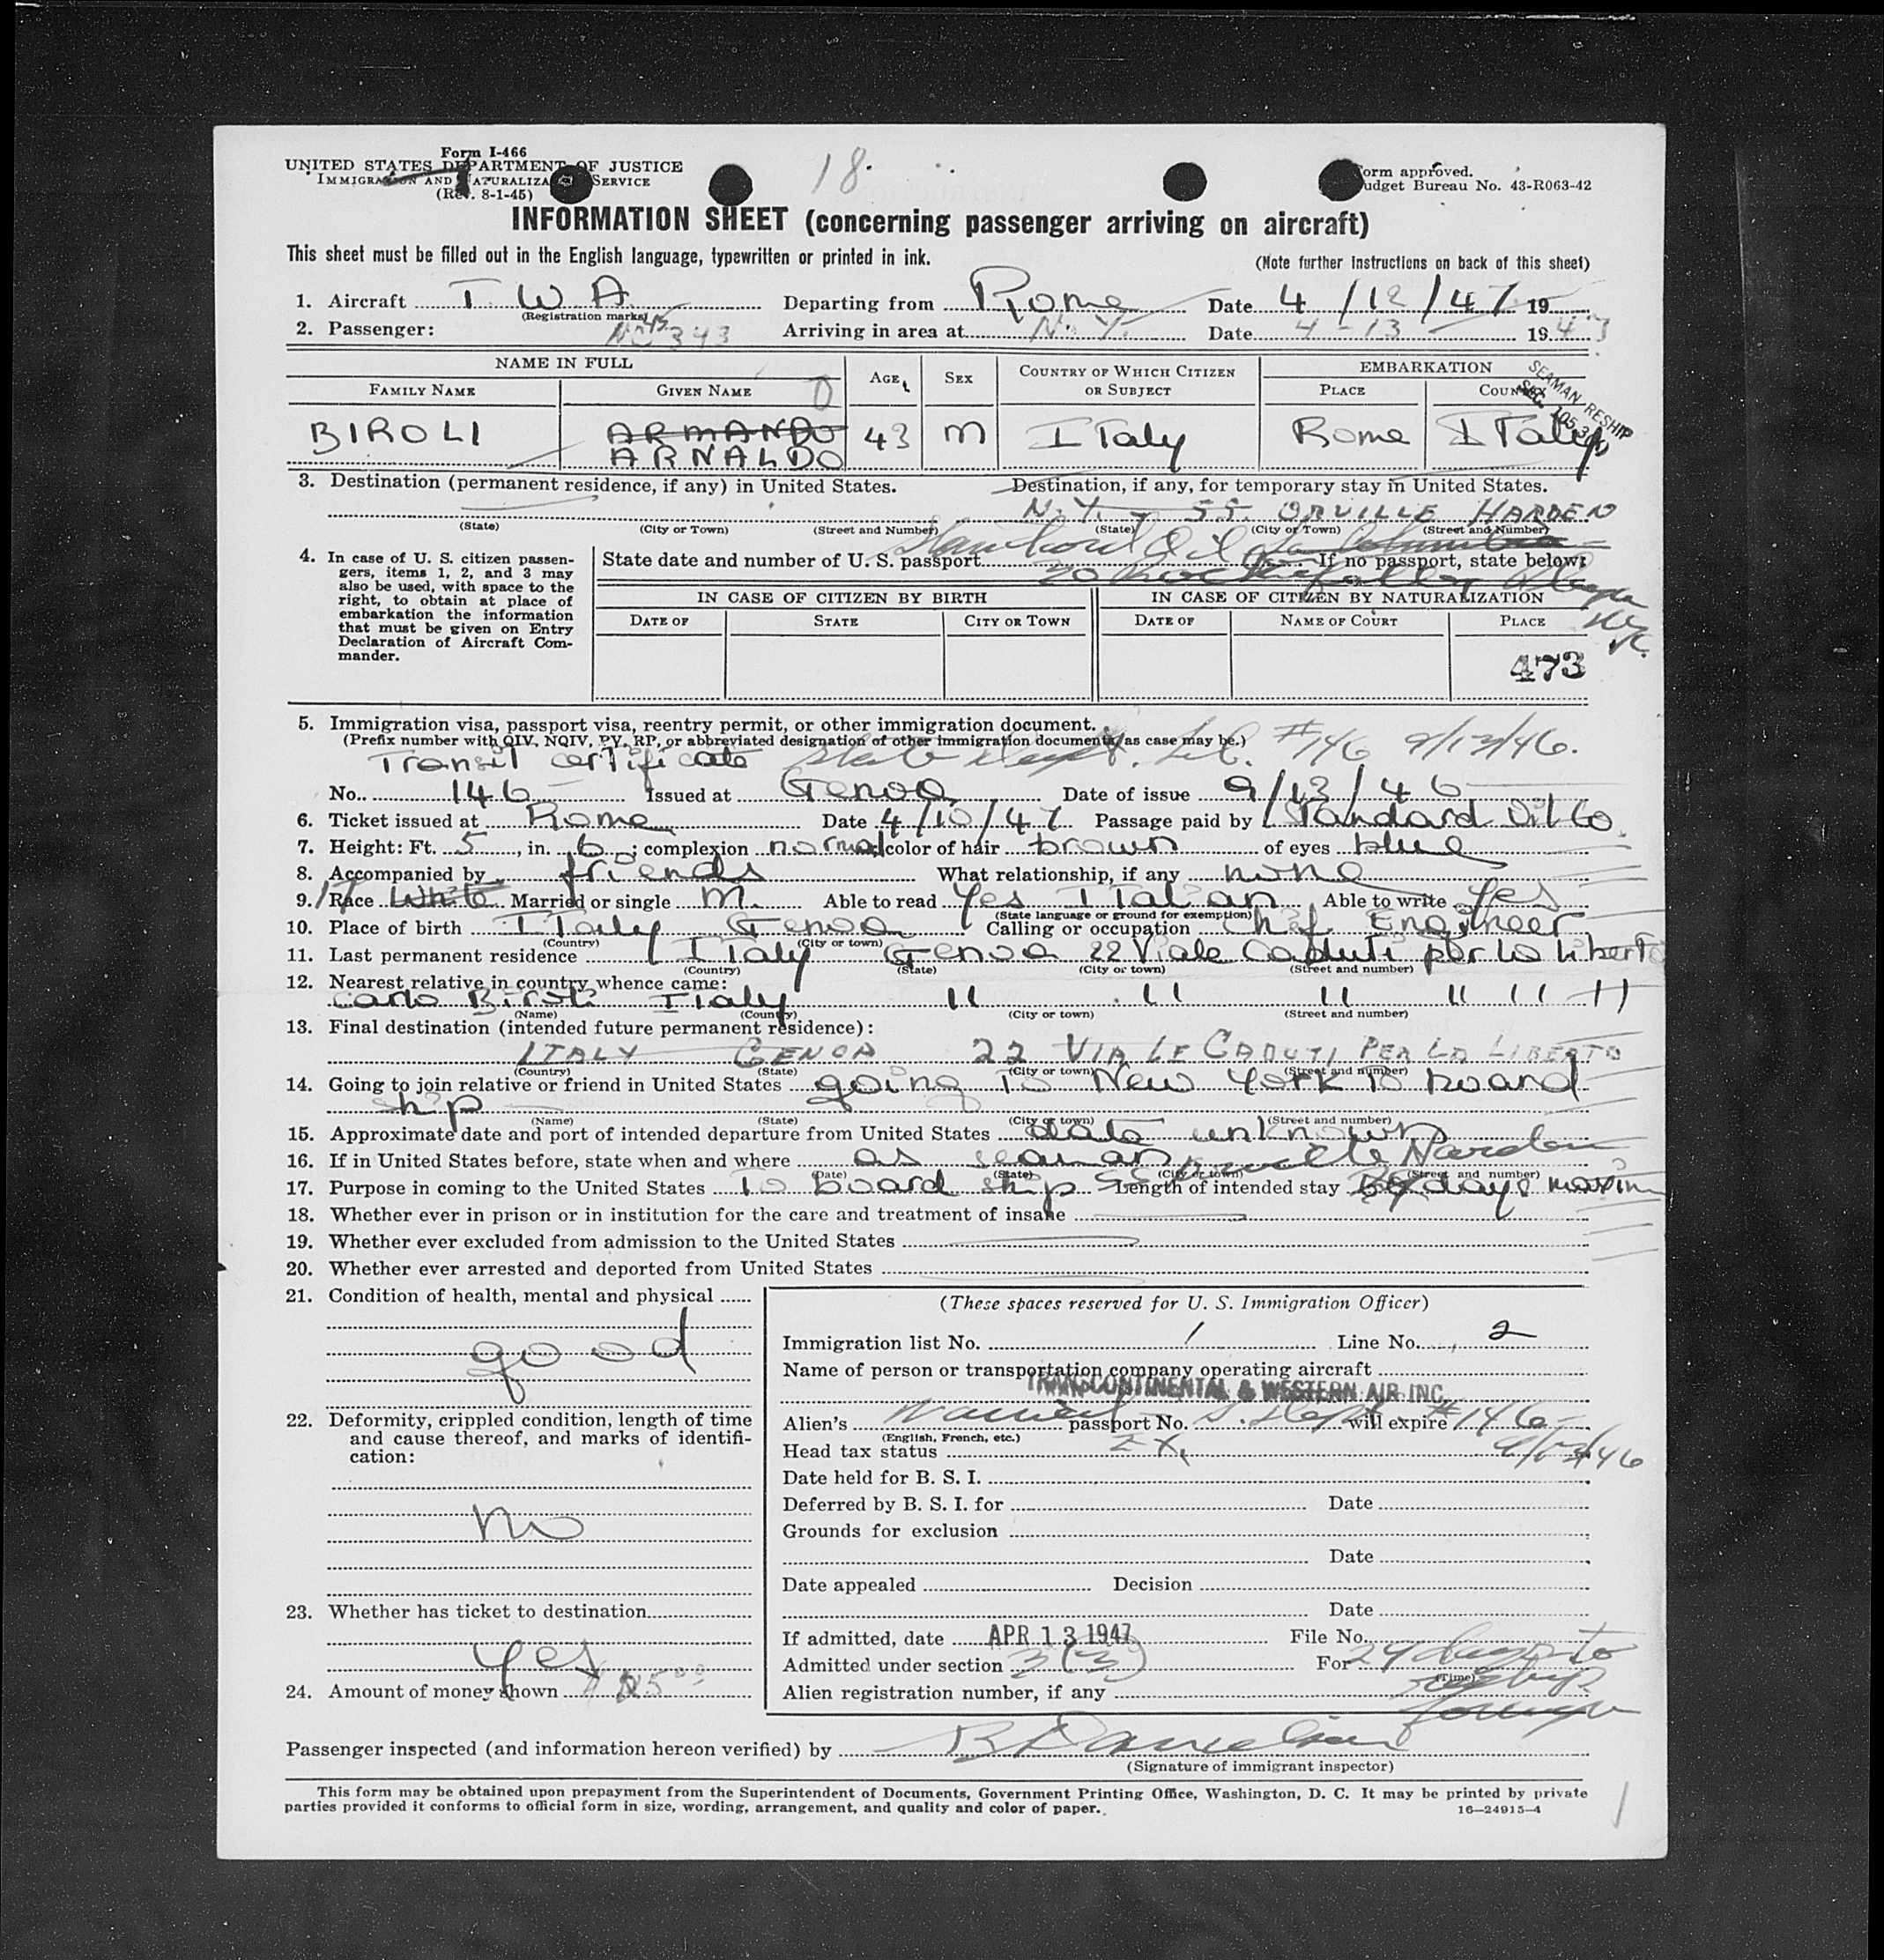 Form I-466
UNITED STATES DEPARTMENT OF JUSTICE
IMMIGRATION AND NATURALIZATION SERVICE
(Rev. 8-1-45)
18.
Form approved.
Budget Bureau No. 43-R063-42
INFORMATION SHEET (concerning passenger arriving on aircraft)
This sheet must be filled out in the English language, typewritten or printed in ink.
(Note further instructions on back of this sheet)
1. Aircraft T W A Departing from Rome Date 4/12/47 19
(Registration marks)
2. Passenger: Arriving in area at N.Y. Date 4-13 1947
NAME IN FULL AGE SEX COUNTRY OF WHICH CITIZEN OR SUBJECT EMBARKATION
FAMILY NAME GIVEN NAME PLACE COUNTRY
SEAMAN-RESHIP
BIROLI ARMANDO 43 M ITaly Rome ITaly
ARNALDO
3. Destination (permanent residence, if any) in United States. Destination, if any, for temporary stay in United States.
N.Y. - SS. ORVILLE HARDEN
(State) (City or Town) (Street and Number) (State) (City or Town) (Street and Number)
4. In case of U. S. citizen passengers, items 1, 2, and 3 may also be used, with space to the right, to obtain at place of embarkation the information that must be given on Entry Declaration of Aircraft Commander.
State date and number of U. S. passport If no passport, state below:
IN CASE OF CITIZEN BY BIRTH IN CASE OF CITIZEN BY NATURALIZATION
DATE OF STATE CITY OR TOWN DATE OF NAME OF COURT PLACE
473
5. Immigration visa, passport visa, reentry permit, or other immigration document.
(Prefix number with QIV, NQIV, PV, RP, or abbreviated designation of other immigration document, as case may be.)
Transit certificate State Dept. #146 9/13/46.
No. 146 Issued at Genoa Date of issue 9/13/46
6. Ticket issued at Rome Date 4/10/47 Passage paid by Standard Oil Co.
7. Height: Ft. 5, in. 6; complexion normal color of hair brown of eyes blue
8. Accompanied by friends What relationship, if any none
9. Race White Married or single M. Able to read Yes ITalian Able to write yes
(State language or ground for exemption)
10. Place of birth ITaly Genoa Calling or occupation chief Engineer
(Country) (City or town)
11. Last permanent residence ITaly Genoa 22 Viale Caduti per la Liberta
(Country) (State) (City or town) (Street and number)
12. Nearest relative in country whence came:
Carlo Biroli ITaly " " " " " "
(Name) (Country) (City or town) (Street and number)
13. Final destination (intended future permanent residence):
ITALY GENOA 22 VIALE CADUTI PER LA LIBERTA
(Country) (State) (City or town) (Street and number)
14. Going to join relative or friend in United States going To New York to board
ship
(Name) (State) (City or town) (Street and number)
15. Approximate date and port of intended departure from United States date unknown
16. If in United States before, state when and where as seaman
(Date) (State) (City or town) (Street and number)
17. Purpose in coming to the United States To board ship SS Orville Harden Length of intended stay 29 days maxim
18. Whether ever in prison or in institution for the care and treatment of insane
19. Whether ever excluded from admission to the United States
20. Whether ever arrested and deported from United States
21. Condition of health, mental and physical
good
22. Deformity, crippled condition, length of time and cause thereof, and marks of identification:
no
23. Whether has ticket to destination
yes
24. Amount of money shown
(These spaces reserved for U. S. Immigration Officer)
Immigration list No. 1 Line No. 2
Name of person or transportation company operating aircraft
TRANSCONTINENTAL & WESTERN AIR INC.
Alien's passport No. S. Dept will expire #146
(English, French, etc.)
9/13/46
Head tax status EX.
Date held for B. S. I.
Deferred by B. S. I. for Date
Grounds for exclusion
Date
Date appealed Decision
Date
If admitted, date APR 13 1947 File No.
Admitted under section 3 (3) For 29 days to
(Time)
reship
foreign
Alien registration number, if any
Passenger inspected (and information hereon verified) by
(Signature of immigrant inspector)
This form may be obtained upon prepayment from the Superintendent of Documents, Government Printing Office, Washington, D. C. It may be printed by private
parties provided it conforms to official form in size, wording, arrangement, and quality and color of paper.
16—24915-4